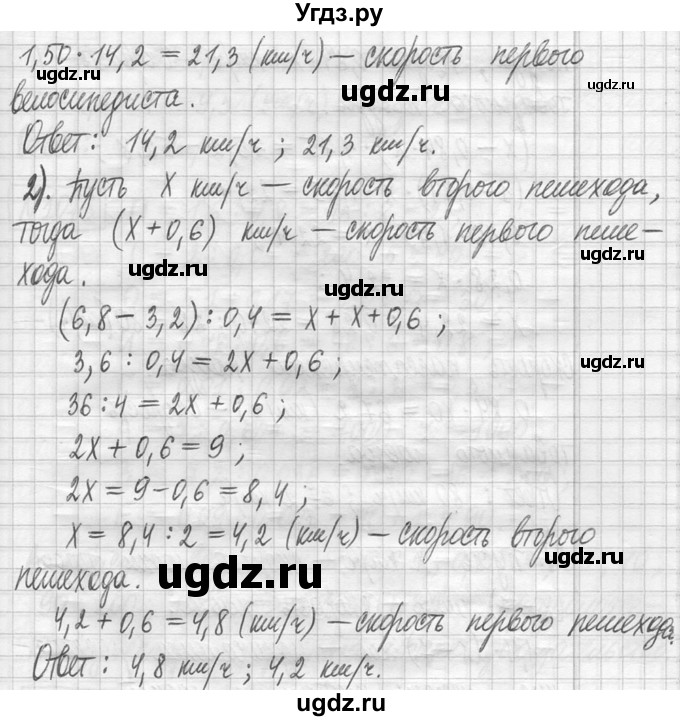 Угдз.ру
1,50·14,2 = 21,3 (км/ч) – скорость первого
велосипедиста.
ugdz.ru
Ответ: 14,2 км/ч ; 21,3 км/ч.
ugdz.ru
2). Пусть X км/ч – скорость второго пешехода,
тогда (X+0,6) км/ч – скорость первого пеше–
хода.
ugdz.ru
ugdz.ru
ugdz.ru
(6,8 – 3,2) : 0,4 = X + X + 0,6 ;
3,6 : 0,4 = 2X + 0,6 ;
ugdz.ru
36 : 4 = 2X + 0,6 ;
2X + 0,6 = 9 ;
2X = 9 – 0,6 = 8,4 ;
X = 8,4 : 2 = 4,2 (км/ч) – скорость второго
ugdz.ru
пешехода.
ugdz.ru
4,2 + 0,6 = 4,8 (км/ч) – скорость первого пешехода.
ugdz.ru
Ответ: 4,8 км/ч ; 4,2 км/ч.
ugdz.ru